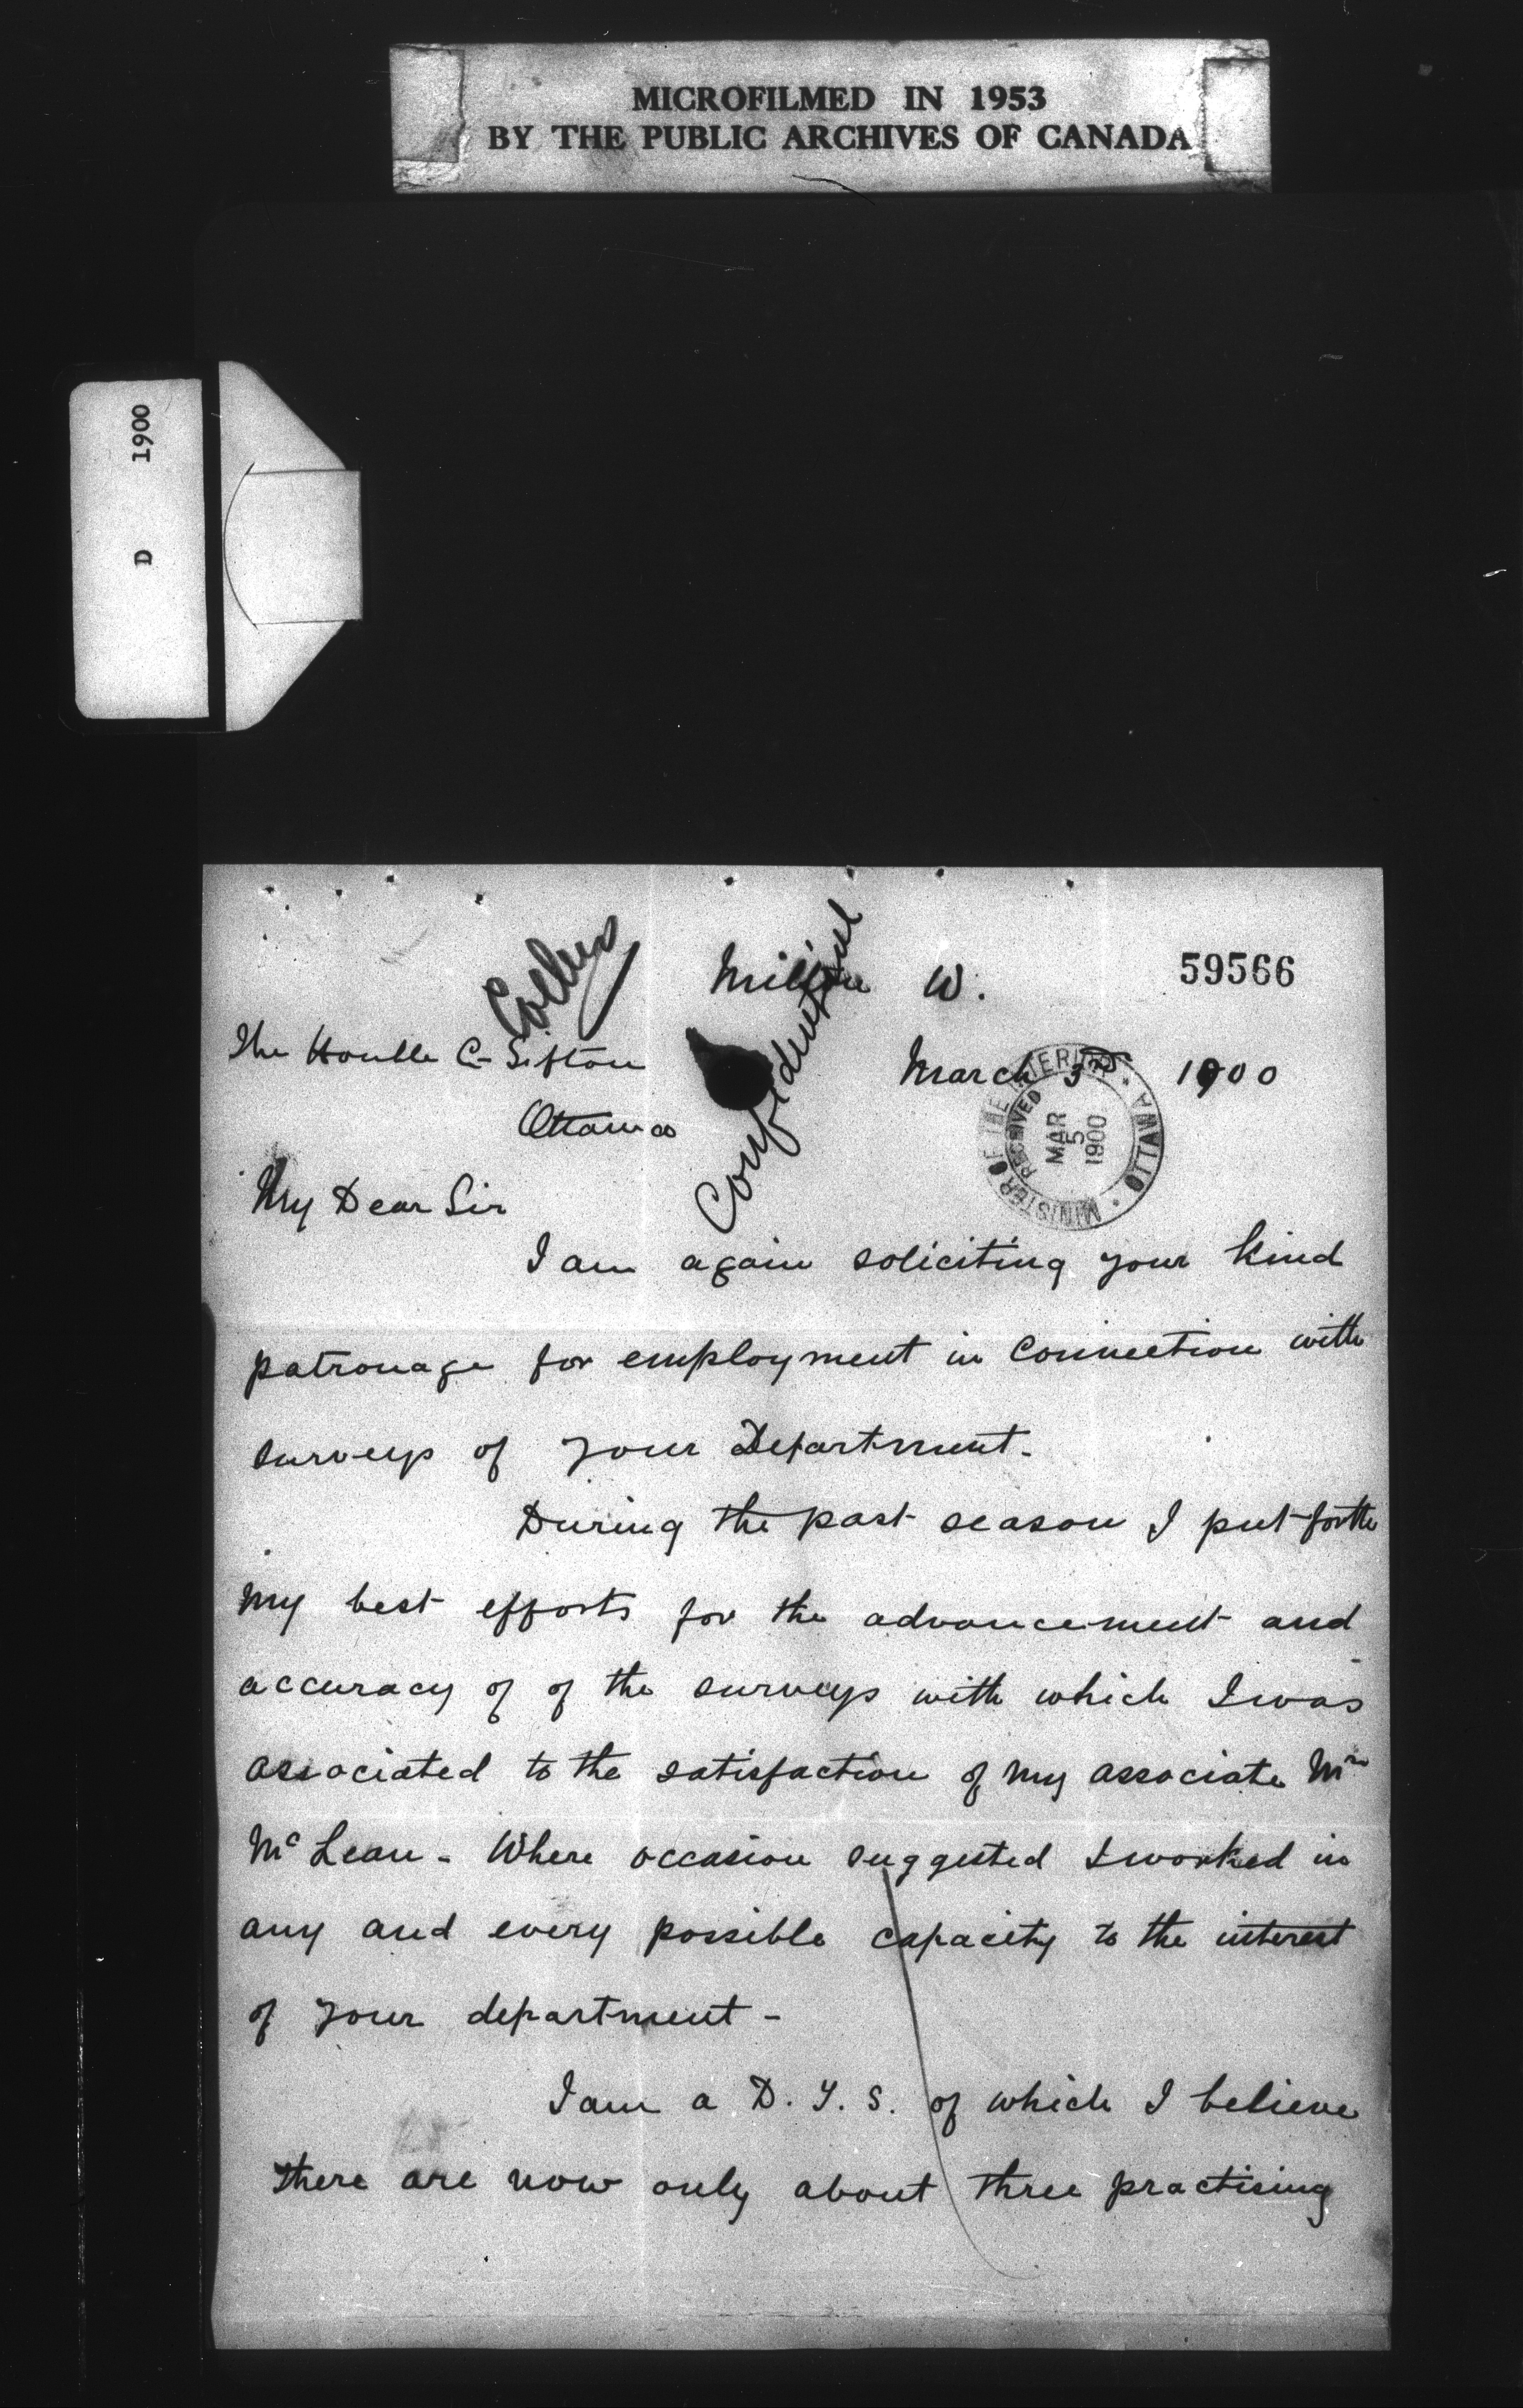 MICROFILMED IN 1953
BY THE PUBLIC ARCHIVES OF CANADA
D 1900
59566
Milton W.
Confidential
The Honble C. Sifton
Ottawa
March 3rd 1900
MINISTER OF THE INTERIOR OTTAWA
RECEIVED
MAR
5
1900
My Dear Sir
I am again soliciting your kind
patronage for employment in connection with
surveys of your Department.
During the past season I put forth
my best efforts for the advancement and
accuracy of of the surveys with which I was
associated to the satisfaction of my associate Mr
McLean - Where occasion suggested I worked in
any and every possible capacity to the interest
of your department -
I am a D. T. S. of which I believe
there are now only about three practising